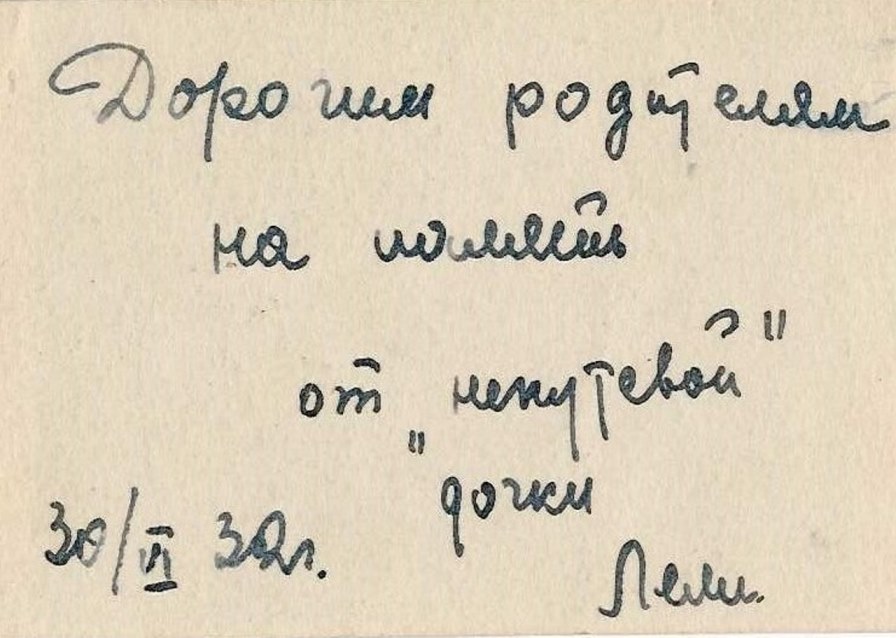 Дорогим родителям
на память
от „непутевой"
дочки
30/VI 32г.
Лели.